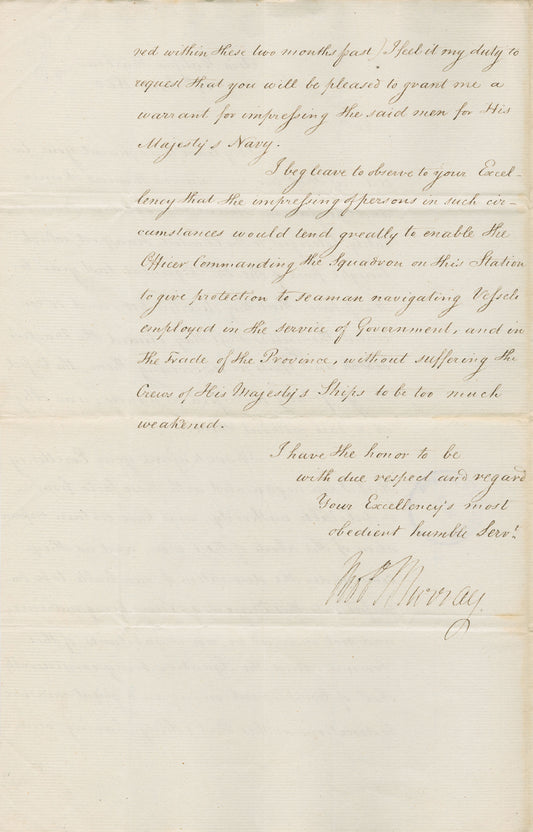 red within these two months past) I feel it my duty to
request that you will be pleased to grant me a
warrant for impressing the said men for His
Majesty's Navy.
I beg leave to observe to your Excel-
lency that the impressing of persons in such cir-
cumstances would tend greatly to enable the
Officer Commanding the Squadron on this Station
to give protection to seaman navigating Vessels
employed in the service of Government, and in
the Trade of the Province, without suffering the
Crews of His Majesty's Ships to be too much
weakened.
I have the honor to be
with due respect and regard
Your Excellency's most
obedient humble Servt.
Murray.